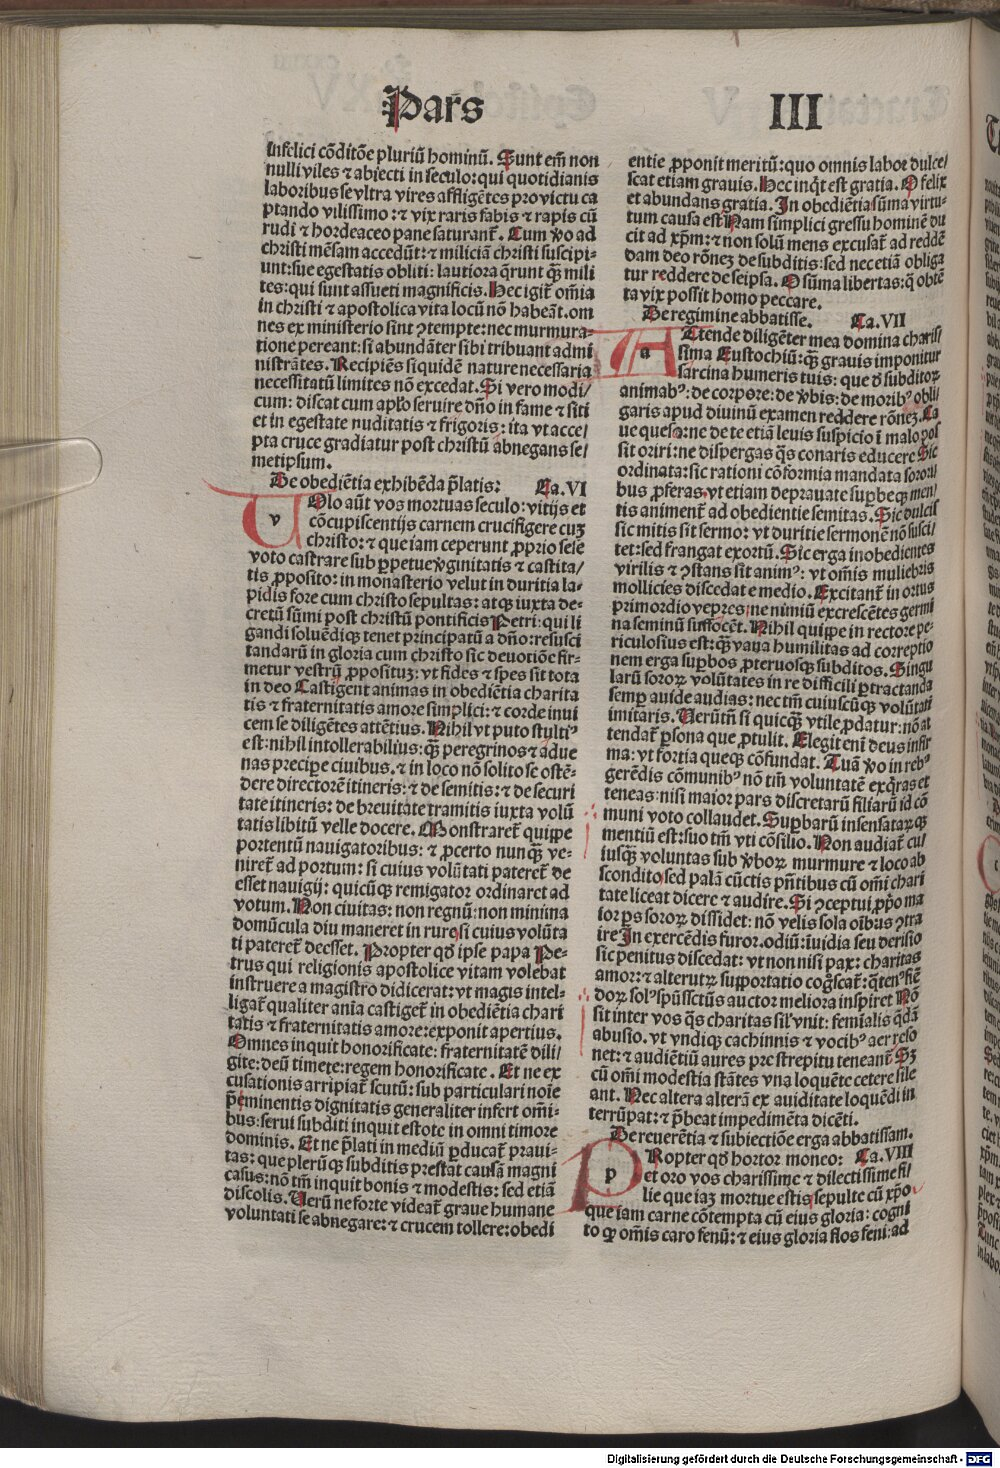 Pars III
infelici cōditōe pluriū hominū. Sunt em̄ non
nulli viles ⁊ abiecti in seculo: qui quotidianis
laboribus se vltra vires affligētes pro victu ca
ptando vilissimo: ⁊ vix raris fabis ⁊ rapis cū
rudi ⁊ hordeaceo pane saturant̄. Cum v̄o ad
christi mēsam accedūt: ⁊ miliciā christi suscipi-
unt: sue egestatis obliti: lautiora q̄runt q̄ȝ mili
tes: qui sunt assueti magnificis. Hec igit̄ om̄ia
in christi ⁊ apostolica vita locū nō habeāt. om
nes ex ministerio sint ꝯtempte: nec murmura-
tione pereant: si abundāter sibi tribuant admi
nistrātes. Recipiēs siquidē nature necessaria
necessitatū limites nō excedat. Si vero modi/
cum: discat cum apl̄o seruire dn̄o in fame ⁊ siti
et in egestate nuditatis ⁊ frigoris: ita vt acce/
pta cruce gradiatur post christū abnegans se/
metipsum.
De obediētia exhibēda p̄latis: Ca. VI
v Olo aūt vos mortuas seculo: vitijs et
cōcupiscentijs carnem crucifigere cuȝ
christo: ⁊ que iam ceperunt ꝓprio sese
voto castrare sub ꝑpetue v̄ginitatis ⁊ castita/
tis ꝓposito: in monasterio velut in duritia la-
pidis fore cum christo sepultas: atqȝ iuxta de-
cretū sūmi post christū pontificis Petri: qui li
gandi soluēdiqȝ tenet principatū a dn̄o: resusci
tandarū in gloria cum christo sic deuotiōe fir-
metur vestrū ꝓposituȝ: vt fides ⁊ spes sit tota
in deo Castigent animas in obediētia charita
tis ⁊ fraternitatis amore simplici: ⁊ corde inui
cem se diligētes attētius. Nihil vt puto stultiꝰ
est: nihil intollerabilius: q̄ȝ peregrinos ⁊ adue
nas precipe ciuibus. ⁊ in loco nō solito se ostē-
dere directorē itineris: ⁊ de semitis: ⁊ de securi
tate itineris: de breuitate tramitis iuxta volū
tatis libitū velle docere. Monstraret̄ quippe
portentū nauigatoribus: ⁊ ꝓcerto nunq̄ȝ ve-
niret̄ ad portum: si cuius volūtati pateret̄ de
esset nauigij: quicūqȝ remigator ordinaret ad
votum. Non ciuitas: non regnū: non minima
domūcula diu maneret in rure si cuius volūta
ti pateret̄ deesset. Propter qd̄ ipse papa Pe-
trus qui religionis apostolice vitam volebat
instruere a magistro didicerat: vt magis intel-
ligat̄ qualiter anīa castiget̄ in obediētia chari
tatis ⁊ fraternitatis amore: exponit apertius.
Omnes inquit honorificate: fraternitatē dili/
gite: deū timete: regem honorificate. Et ne ex
cusationis arripiat̄ scutū: sub particulari noīe
p̄eminentis dignitatis generaliter infert om̄i-
bus: serui subditi inquit estote in omni timore
dominis. Et ne p̄lati in mediū ꝑducat̄ praui-
tas: que plerūqȝ subditis prestat causā magni
casus: nō tm̄ inquit bonis ⁊ modestis: sed etiā
discolis. Verū ne forte videat̄ graue humane
voluntati se abnegare: ⁊ crucem tollere: obedi
entie ꝓponit meritū: quo omnis labor dulce/
scat etiam grauis. Hec inq̄t est gratia. O felix
et abundans gratia. In obediētia sūma virtu-
tum causa est Nam simplici gressu hominē du
cit ad xp̄m: ⁊ non solū mens excusat̄ ad reddē
dam deo rōneȝ de subditis: sed nec etiā obliga
tur reddere de seipsa. O sūma libertas: q̄ obtē
ta vix possit homo peccare.
De regimine abbatisse. Ca. VII
a Ttende diligēter mea domina charis/
sima Eustochiū: q̄ȝ grauis imponitur
sarcina humeris tuis: que d̄ subditoꝝ
animabꝰ: de corpore: de v̄bis: de moribꝰ obli/
garis apud diuinū examen reddere rōneȝ. Ca
ue queso: ne de te etiā leuis suspicio ī malo pos
sit oriri: ne dispergas q̄s conaris educere Sic
ordinata: sic rationi cōformia mandata soroꝝ/
bus ꝓferas. vt etiam deprauate suꝑbeqȝ men/
tis animent̄ ad obedientie semitas. Sic dulcis
sic mitis sit sermo: vt duritie sermonē nō susci/
tet: sed frangat exortū. Sic erga inobedientes
virilis ⁊ ꝯstans sit animꝰ: vt om̄is muliebris
mollicies discedat e medio. Excitant̄ in ortus
primordio vepres: ne nimiū excrescētes germi
na seminū suffocēt. Nihil quippe in rectore pe-
riculosius est: q̄ȝ vana humilitas ad correptio
nem erga suꝑbos ꝓteruosqȝ subditos. Singu
larū soroꝝ volūtates in re difficili ꝑtractanda
semꝑ auide audias: nec tm̄ cuiuscūqȝ volūtatē
imitaris. Verūtn̄ si quicq̄ȝ vtile ꝓdatur: nō at
tendat̄ ꝑsona que ꝓtulit. Elegit enī deus infir
ma: vt fortia queqȝ cōfundat. Tuā v̄o in rebꝰ
gerēdis cōmunibꝰ nō tm̄ voluntatē exq̄ras et
teneas: nisi maior pars discretarū filiarū id cō
muni voto collaudet. Suꝑbarū insensataꝝqȝ
mentiū est: suo tm̄ vti cōsilio. Non audiat̄ cu/
iusqȝ voluntas sub v̄boꝝ murmure ⁊ loco ab
scondito sed palā cūctis pn̄tibus cū om̄i chari
tate liceat dicere ⁊ audire. Si ꝯceptui ꝓp̄o ma
ior ꝑs soroꝝ dissidet: nō velis sola oībus ꝯtra
ire In exercēdis furor. odiū: īuidia seu derisio
sic penitus discedat: vt non nisi pax: charitas
amor: ⁊ alterutꝝ supportatio cog̃scat̄: q̄tenꝰ fiē
doꝝ solꝰ spūssctūs auctor meliora inspiret Nō
sit inter vos q̄s charitas sil̄ vnit: femīalis q̄dā
abusio. vt vndiqȝ cachinnis ⁊ vocibꝰ aer reso
net: ⁊ audiētiū aures pre strepitu teneant̄ Sȝ
cū om̄i modestia stātes vna loquēte cetere sile
ant. Nec altera alterā ex auiditate loquēdi in
terrūpat: ⁊ p̄beat impedimēta dicēti.
De reuerētia ⁊ subiectiōe erga abbatissam.
p Ropter qd̄ hortor moneo: Ca. VIII
et oro vos charissime ⁊ dilectissime fi/
lie que iaȝ mortue estis sepulte cū xp̄o
que iam carne cōtempta cū eius gloria: cogni
to ꝙ om̄is caro fenū: ⁊ eius gloria flos feni: ad
Digitalisierung gefördert durch die Deutsche Forschungsgemeinschaft - DFG